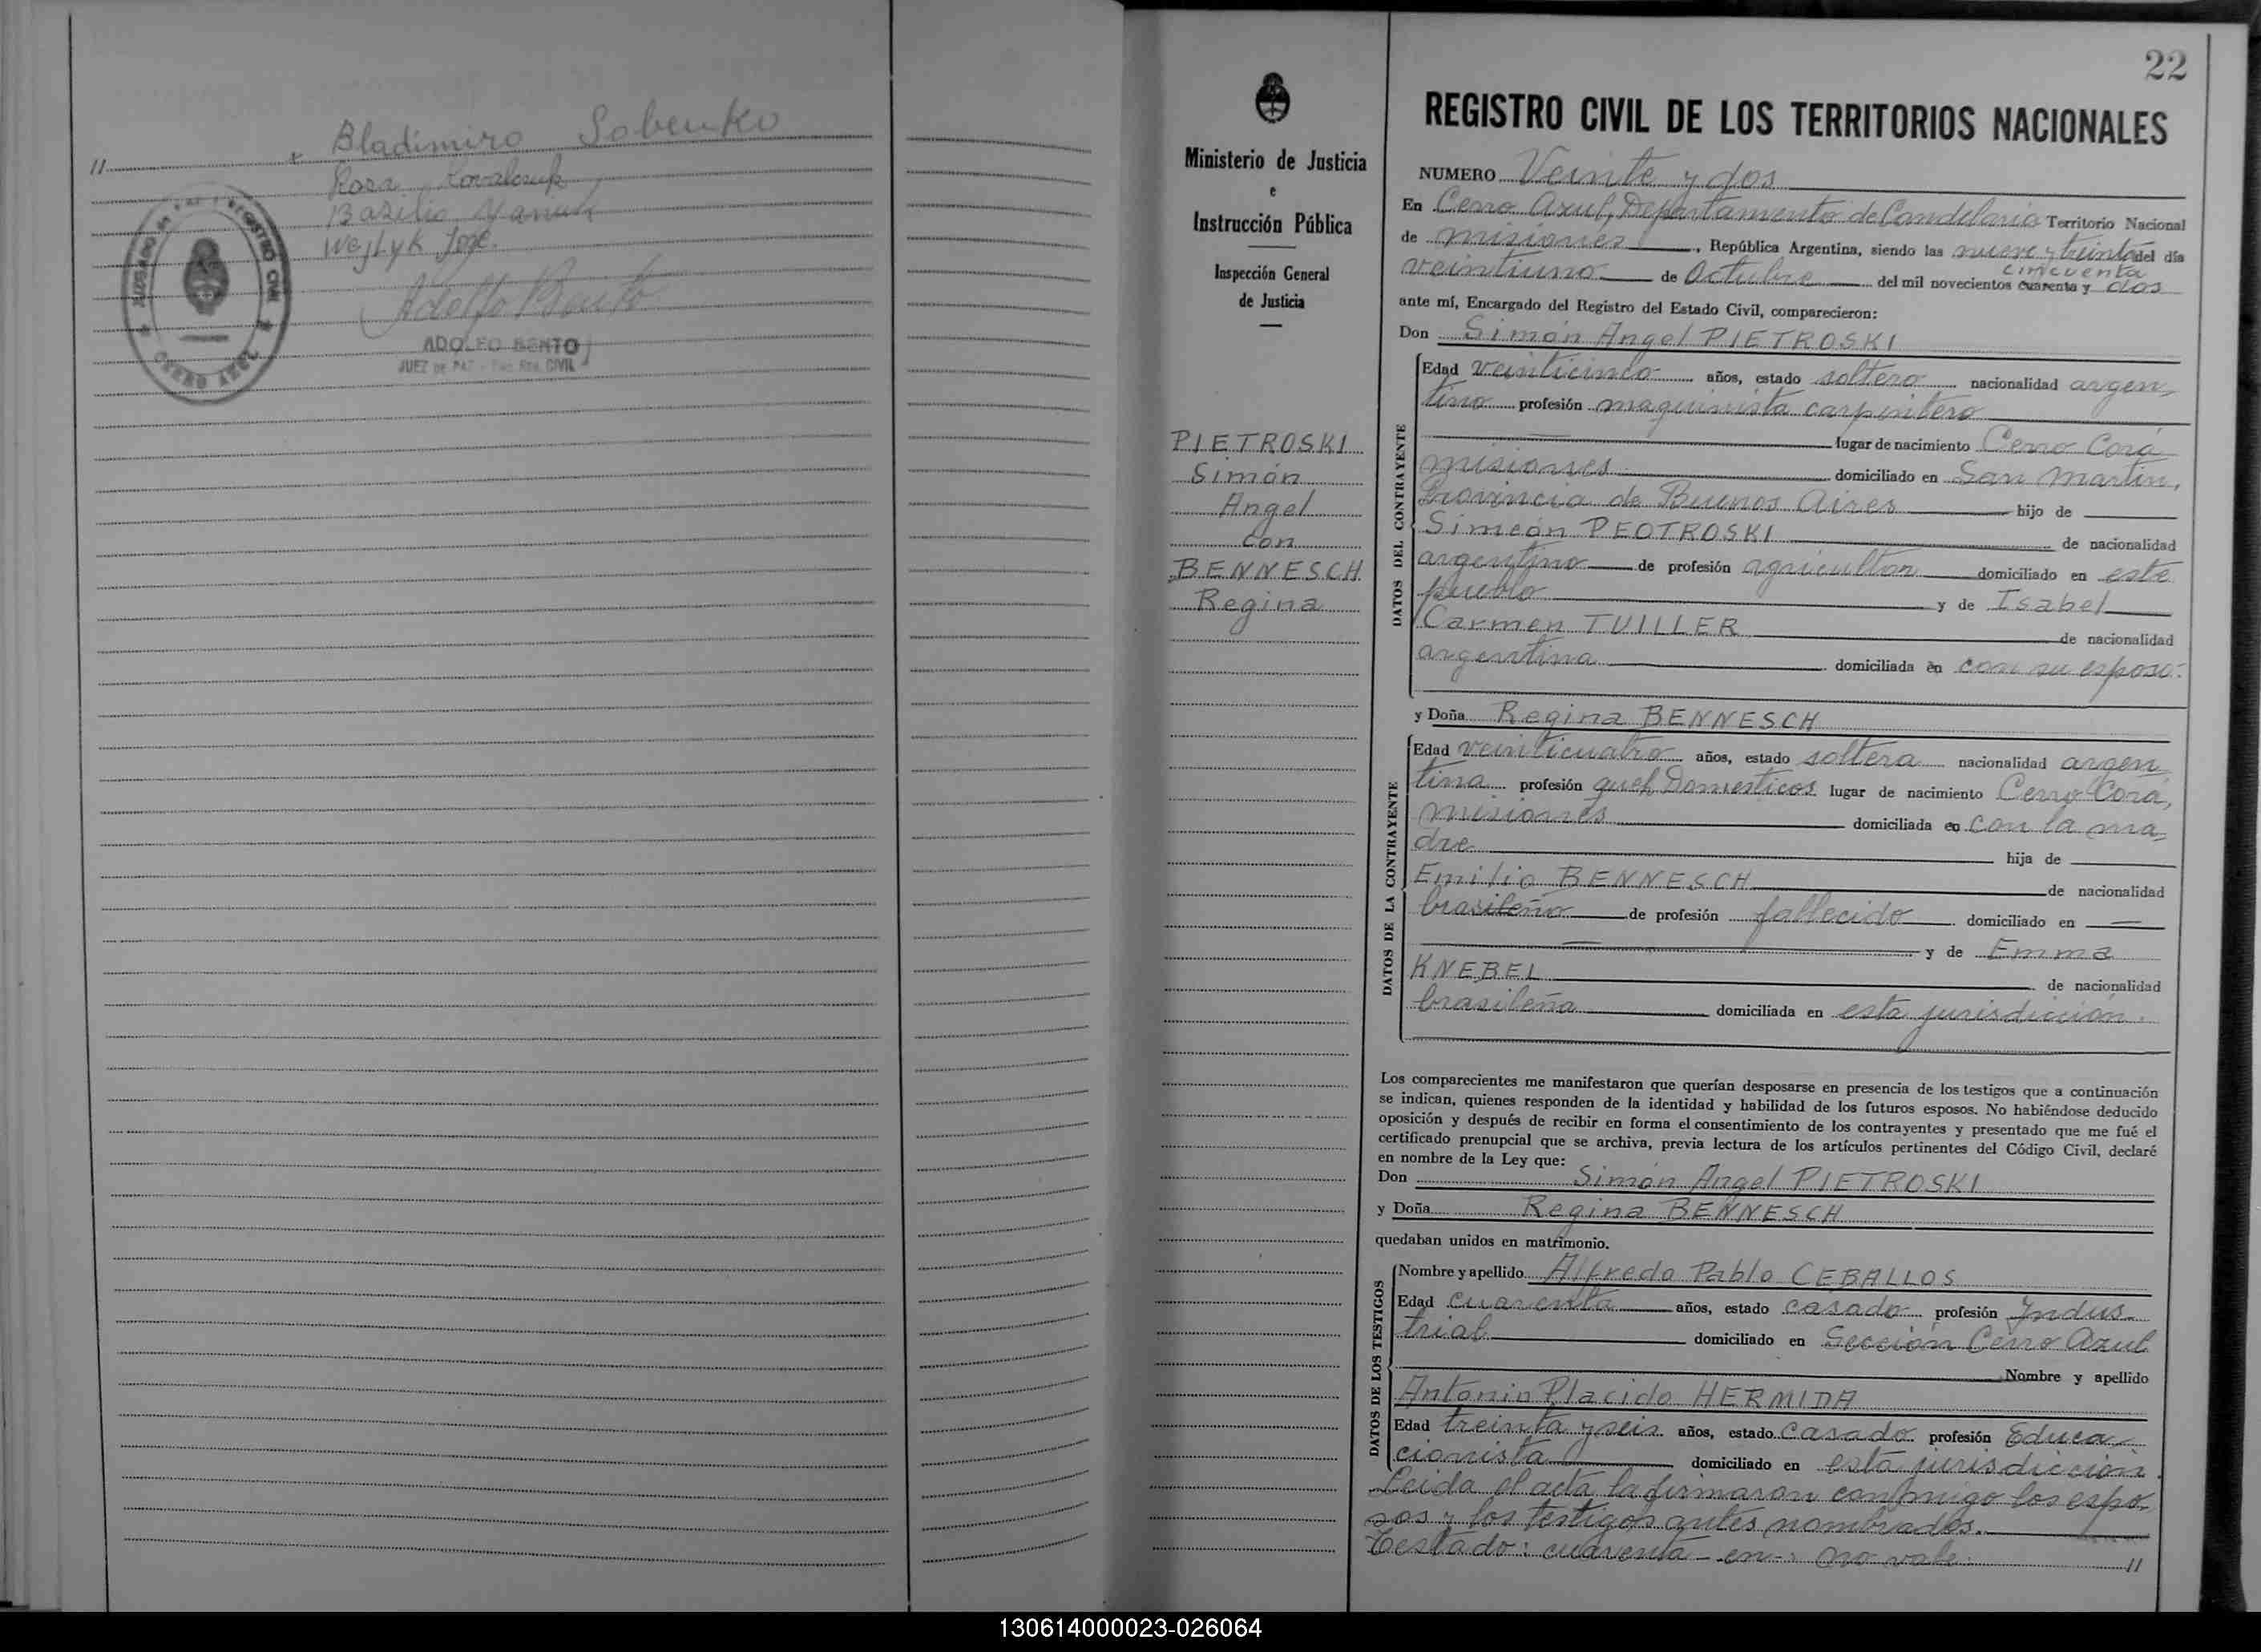 // Bladimiro Sobenko
Rosa Kovalczuk
Basilio Yaniuk
Wejtyk Jose.
REGISTRO CIVIL
CERRO AZUL
Adolfo Bento
ADOLFO BENTO
JUEZ DE PAZ - ENC. REG. CIVIL
22
Ministerio de Justicia
e
Instrucción Pública
Inspección General
de Justicia
PIETROSKI
Simón
Angel
con
BENNESCH
Regina
REGISTRO CIVIL DE LOS TERRITORIOS NACIONALES
NUMERO Veinte y dos
En Cerro Azul, Departamento de Candelaria Territorio Nacional
de Misiones, República Argentina, siendo las nueve y treinta del día
cincuenta
veintiuno de Octubre del mil novecientos cuarenta y dos
ante mí, Encargado del Registro del Estado Civil, comparecieron:
Don Simón Angel PIETROSKI
DATOS DEL CONTRAYENTE
Edad veinticinco años, estado soltero nacionalidad argen-
tino profesión maquinista carpintero
lugar de nacimiento Cerro Corá
Misiones domiciliado en San Martín,
Provincia de Buenos Aires hijo de
Simeón PEOTROSKI de nacionalidad
argentino de profesión agricultor domiciliado en este
pueblo y de Isabel
Carmen TUILLER de nacionalidad
argentina domiciliada en con su esposo.
y Doña Regina BENNESCH
DATOS DE LA CONTRAYENTE
Edad veinticuatro años, estado soltera nacionalidad argen-
tina profesión queh. Domesticos lugar de nacimiento Cerro Corá,
Misiones domiciliada en con la ma-
dre hija de
Emilio BENNESCH de nacionalidad
brasileño de profesión fallecido domiciliado en —
— y de Emma
KNEBEL de nacionalidad
brasileña domiciliada en esta jurisdicción.
Los comparecientes me manifestaron que querían desposarse en presencia de los testigos que a continuación
se indican, quienes responden de la identidad y habilidad de los futuros esposos. No habiéndose deducido
oposición y después de recibir en forma el consentimiento de los contrayentes y presentado que me fué el
certificado prenupcial que se archiva, previa lectura de los artículos pertinentes del Código Civil, declaré
en nombre de la Ley que:
Don Simón Angel PIETROSKI
y Doña Regina BENNESCH
quedaban unidos en matrimonio.
DATOS DE LOS TESTIGOS
Nombre y apellido Alfredo Pablo CEBALLOS
Edad cuarenta años, estado casado profesión Indus-
trial domiciliado en Sección Cerro Azul
Nombre y apellido
Antonio Placido HERMIDA
Edad treinta y seis años, estado casado profesión Educa-
cionista domiciliado en esta jurisdicción.
Leida el acta la firmaron conmigo los espo-
sos y los testigos antes nombrados.
Testado: cuarenta - en -: no vale. //
130614000023-026064